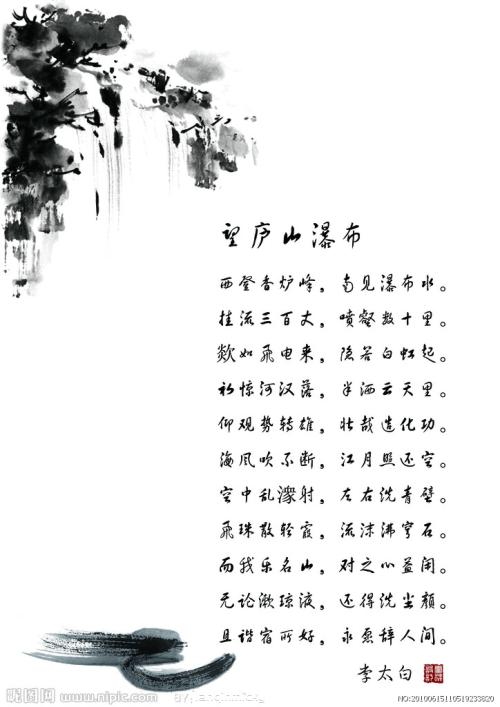 望庐山瀑布
西登香炉峰，南见瀑布水。
挂流三百丈，喷壑数十里。
欻如飞电来，隐若白虹起。
初惊河汉落，半洒云天里。
仰观势转雄，壮哉造化功。
海风吹不断，江月照还空。
空中乱潈射，左右洗青壁。
飞珠散轻霞，流沫沸穹石。
而我乐名山，对之心益闲。
无论漱琼液，还得洗尘颜。
且谐宿所好，永愿辞人间。
李太白
昵图网 www.nipic.com
NO:20100615110519233820